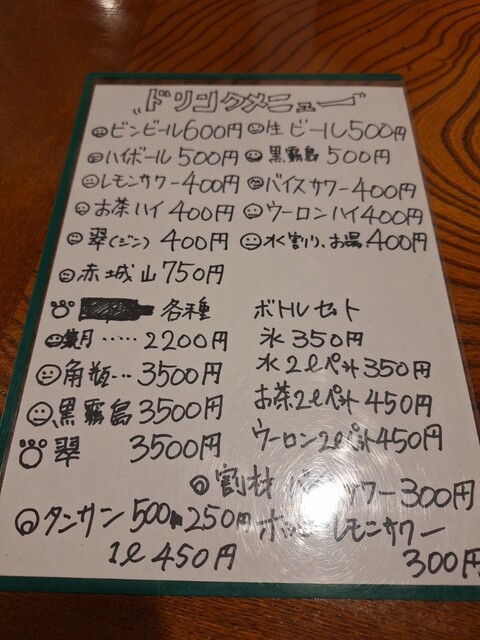 ドリンクメニュー
ビンビール600円 生ビール500円
ハイボール500円 黒霧島500円
レモンサワー400円 バイスサワー400円
お茶ハイ400円 ウーロンハイ400円
翠(ジン)400円 水割り、お湯400円
赤城山750円
各種 ボトルセット
月……2200円 氷350円
角瓶…3500円 水2ℓペット350円
黒霧島3500円 お茶2ℓペット450円
翠 3500円 ウーロン2ℓペット450円
割材 サワー300円
タンサン500 250円 レモンサワー
1ℓ450円 300円